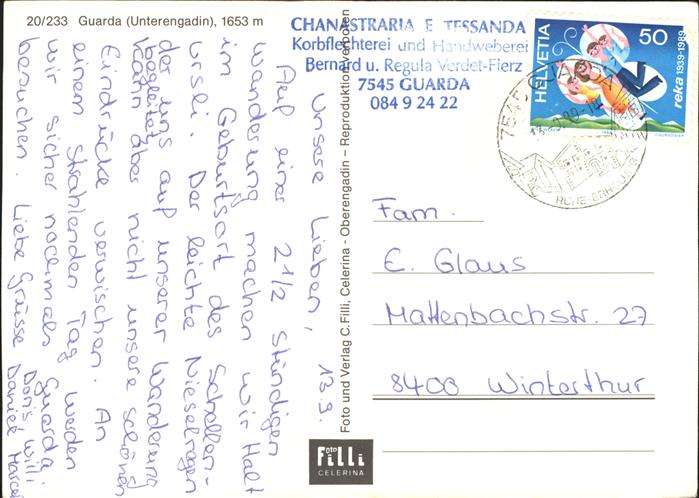 20/233 Guarda (Unterengadin), 1653 m
CHANASTRARIA E TESSANDA
Korbflechterei und Handweberei
Bernard u. Regula Verdet-Fierz
7545 GUARDA
084 9 24 22
HELVETIA
50
reka 1939-1989
7545 GUARDA
Foto und Verlag C. Filli, Celerina - Oberengadin – Reproduktion verboten
13.9.
Unsere Lieben,
Auf einer 2 1/2 stündigen
Wanderung machen wir Halt
im Geburtsort des Schellen-
ursli. Der leichte Nieselregen
der uns auf unserer Wanderung
begleitet,
kann aber nicht unsere schönen
Eindrücke verwischen. An
einem strahlenden Tag werden
wir sicher nochmals Guarda
besuchen. Liebe Grüsse Doris, Willi
Daniel Marcel
Fam.
E. Glaus
Mattenbachstr. 27
8400 Winterthur
Foto
Filli
CELERINA